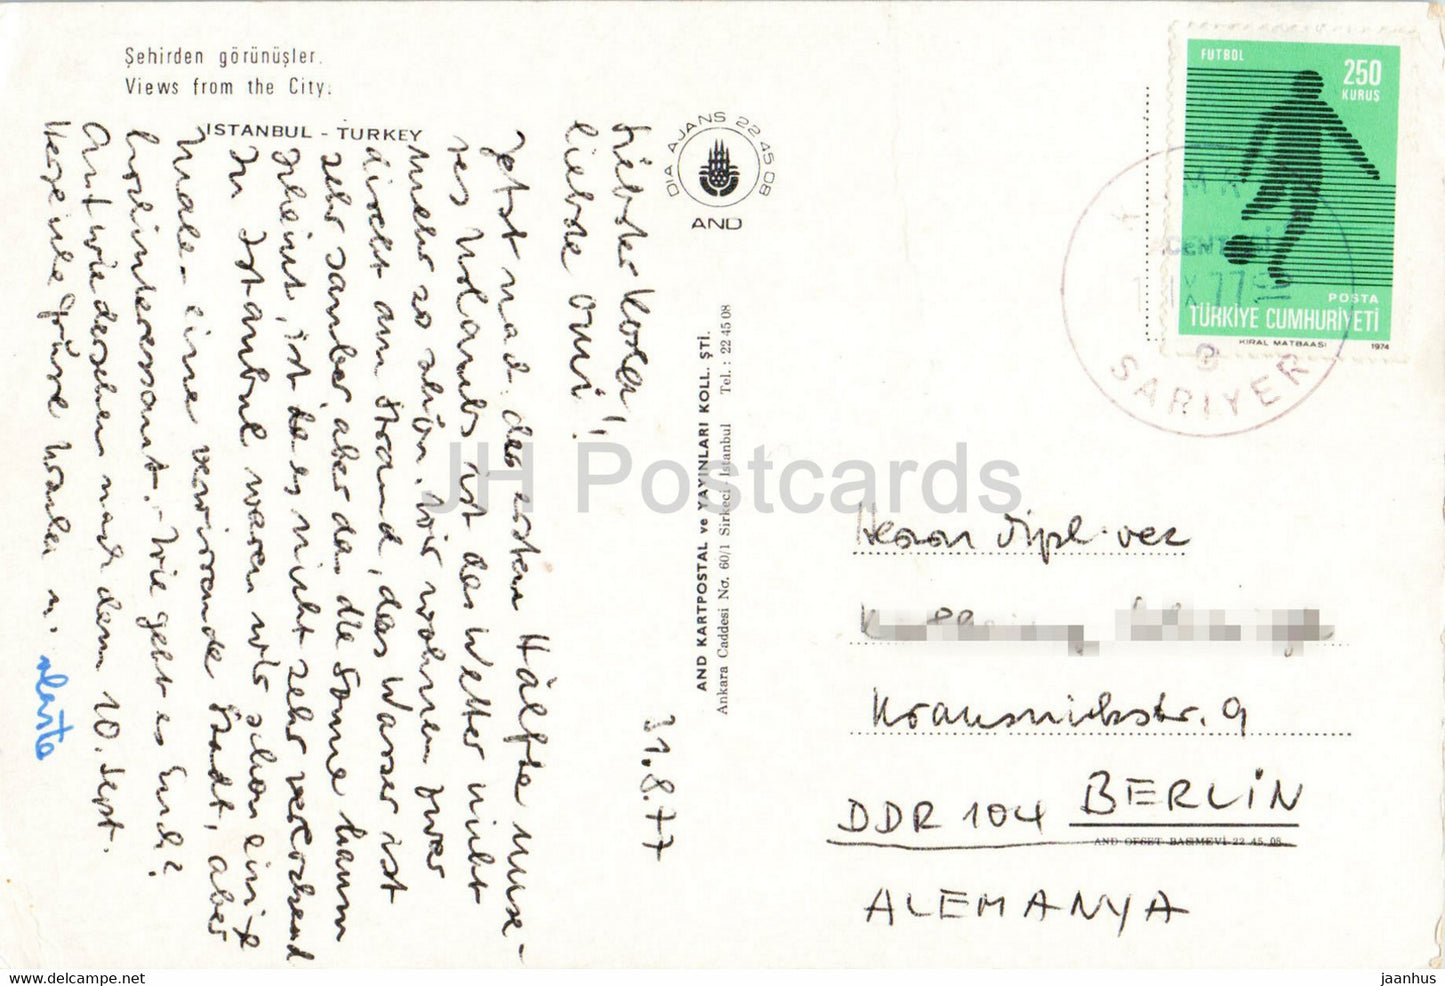 Şehirden görünüşler.
Views from the City.
ISTANBUL - TURKEY
31.8.77
liebe Omi!
Jetzt nach der ersten Hälfte unse-
res Urlaubs ist das Wetter nicht
mehr so schön. Wir wohnen zwar
direkt am Strand, das Wasser ist
sehr sauber, aber da die Sonne kaum
scheint, ist es nicht sehr verlockend
In Istanbul waren wir schon einige
Male - eine verwirrende Stadt, aber
hochinteressant. - Wie geht es Euch?
Auf Wiedersehen nach dem 10. Sept.
Herzliche Grüsse
DIA AJANS 22 45 08
AND
AND KARTPOSTAL ve YAYINLARI KOLL. ŞTİ.
Ankara Caddesi No. 60/1 Sirkeci İstanbul Tel.: 22 45 08
FUTBOL
250
KURUŞ
POSTA
TÜRKİYE CUMHURİYETİ
KIRAL MATBAASI 1974
IX 77
SARIYER
Herrn Dipl.
9
DDR 104 BERLIN
AND OFSET BASIMEVİ 22 45 08
ALEMANYA
JH Postcards
www.delcampe.net
jaanhus